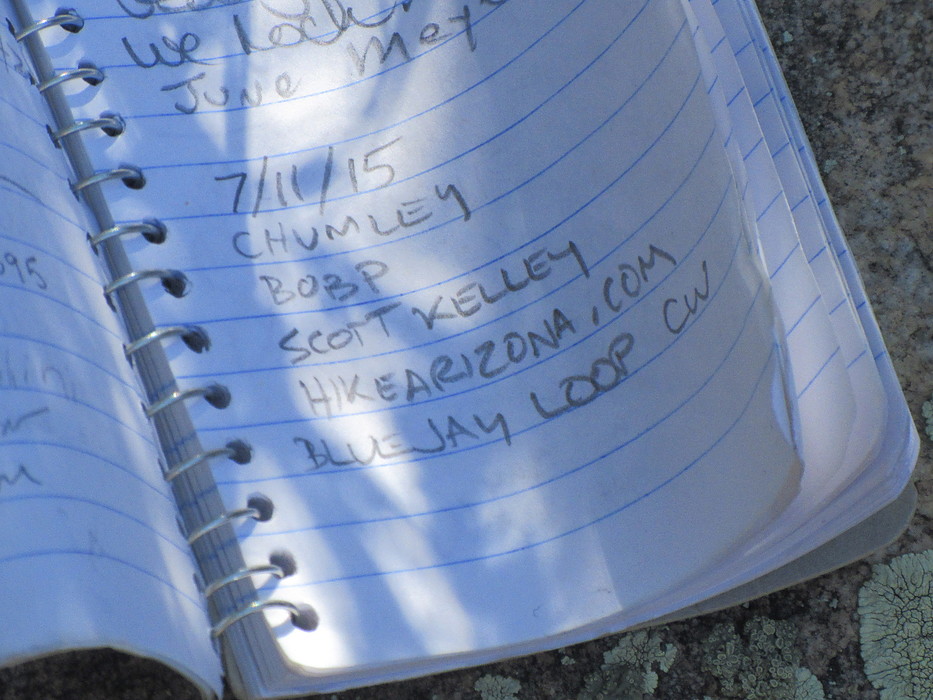 We lock
June Mey
7/11/15
CHUMLEY
BOBP
SCOTT KELLEY
HIKEARIZONA.COM
BLUEJAY LOOP CW
095